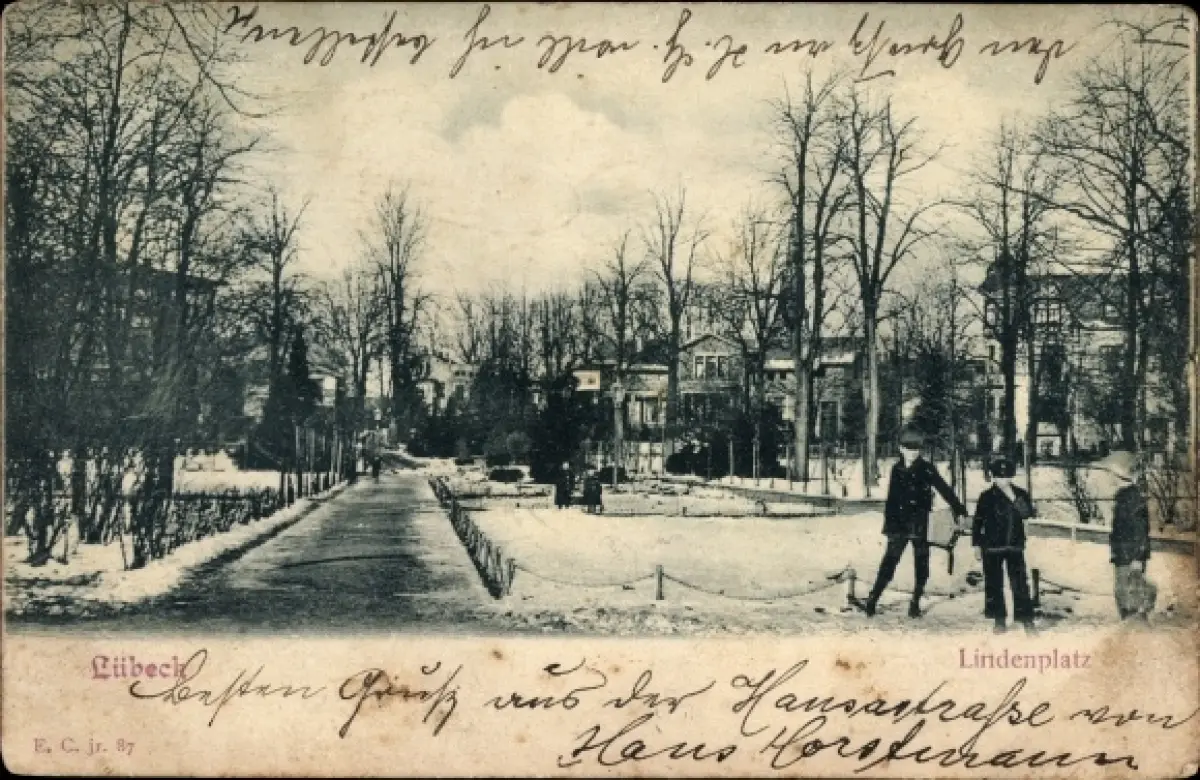 den Gruß an
Lübeck
Lindenplatz
Besten Gruß aus der Hansastraße von
Hans Horstmann
E. C. jr. 87